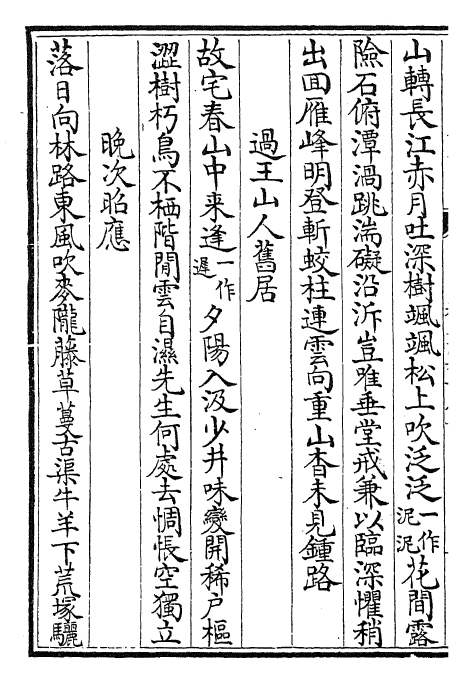 山轉長江赤月吐深樹颯颯松上吹泛泛一作泥泥花間露
險石俯潭渦跳湍礙沿泝豈唯垂堂戒兼以臨深懼稍
出回雁峰明登斬蛟柱連雲向重山杳未見鍾路
過王山人舊居
故宅春山中来逢一作遲夕陽入汲少井味變開稀户樞
澀樹朽鳥不栖階閒雲自濕先生何處去惆悵空獨立
晚次昭應
落日向林路東風吹麥隴藤草蔓古渠牛羊下荒塚驪